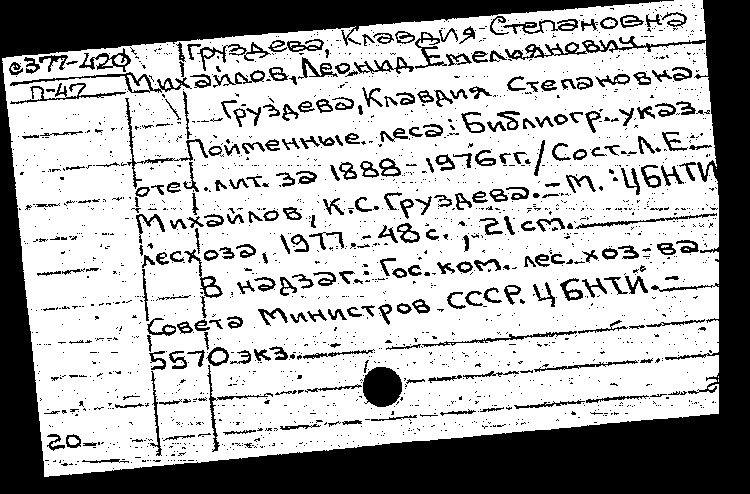 Груздева, Клавдия Степановна
с377-420
П-47
Михайлов, Леонид Емельянович,
Груздева, Клавдия Степановна.
Пойменные леса: Библиогр. указ.
отеч. лит. за 1888-1976гг./Сост. Л.Е.
Михайлов, К.С. Груздева. - М.: ЦБНТИ
лесхоза, 1977. - 48 с. ; 21 cm.
В надзаг.: Гос. ком. лес. хоз-ва
Совета Министров СССР. ЦБНТИ. -
5570 экз.
20